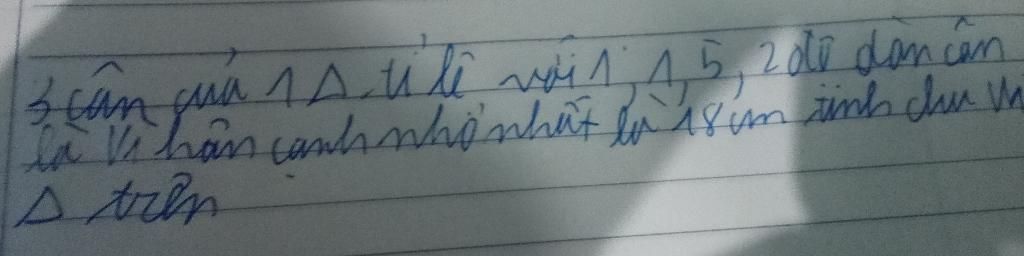 3 cân của 1 Δ tỉ lê với 1, 1,5, 2 dộ dàn cân
là hân canh nhỏ nhất là 18 cm tính chu vi
Δ trên